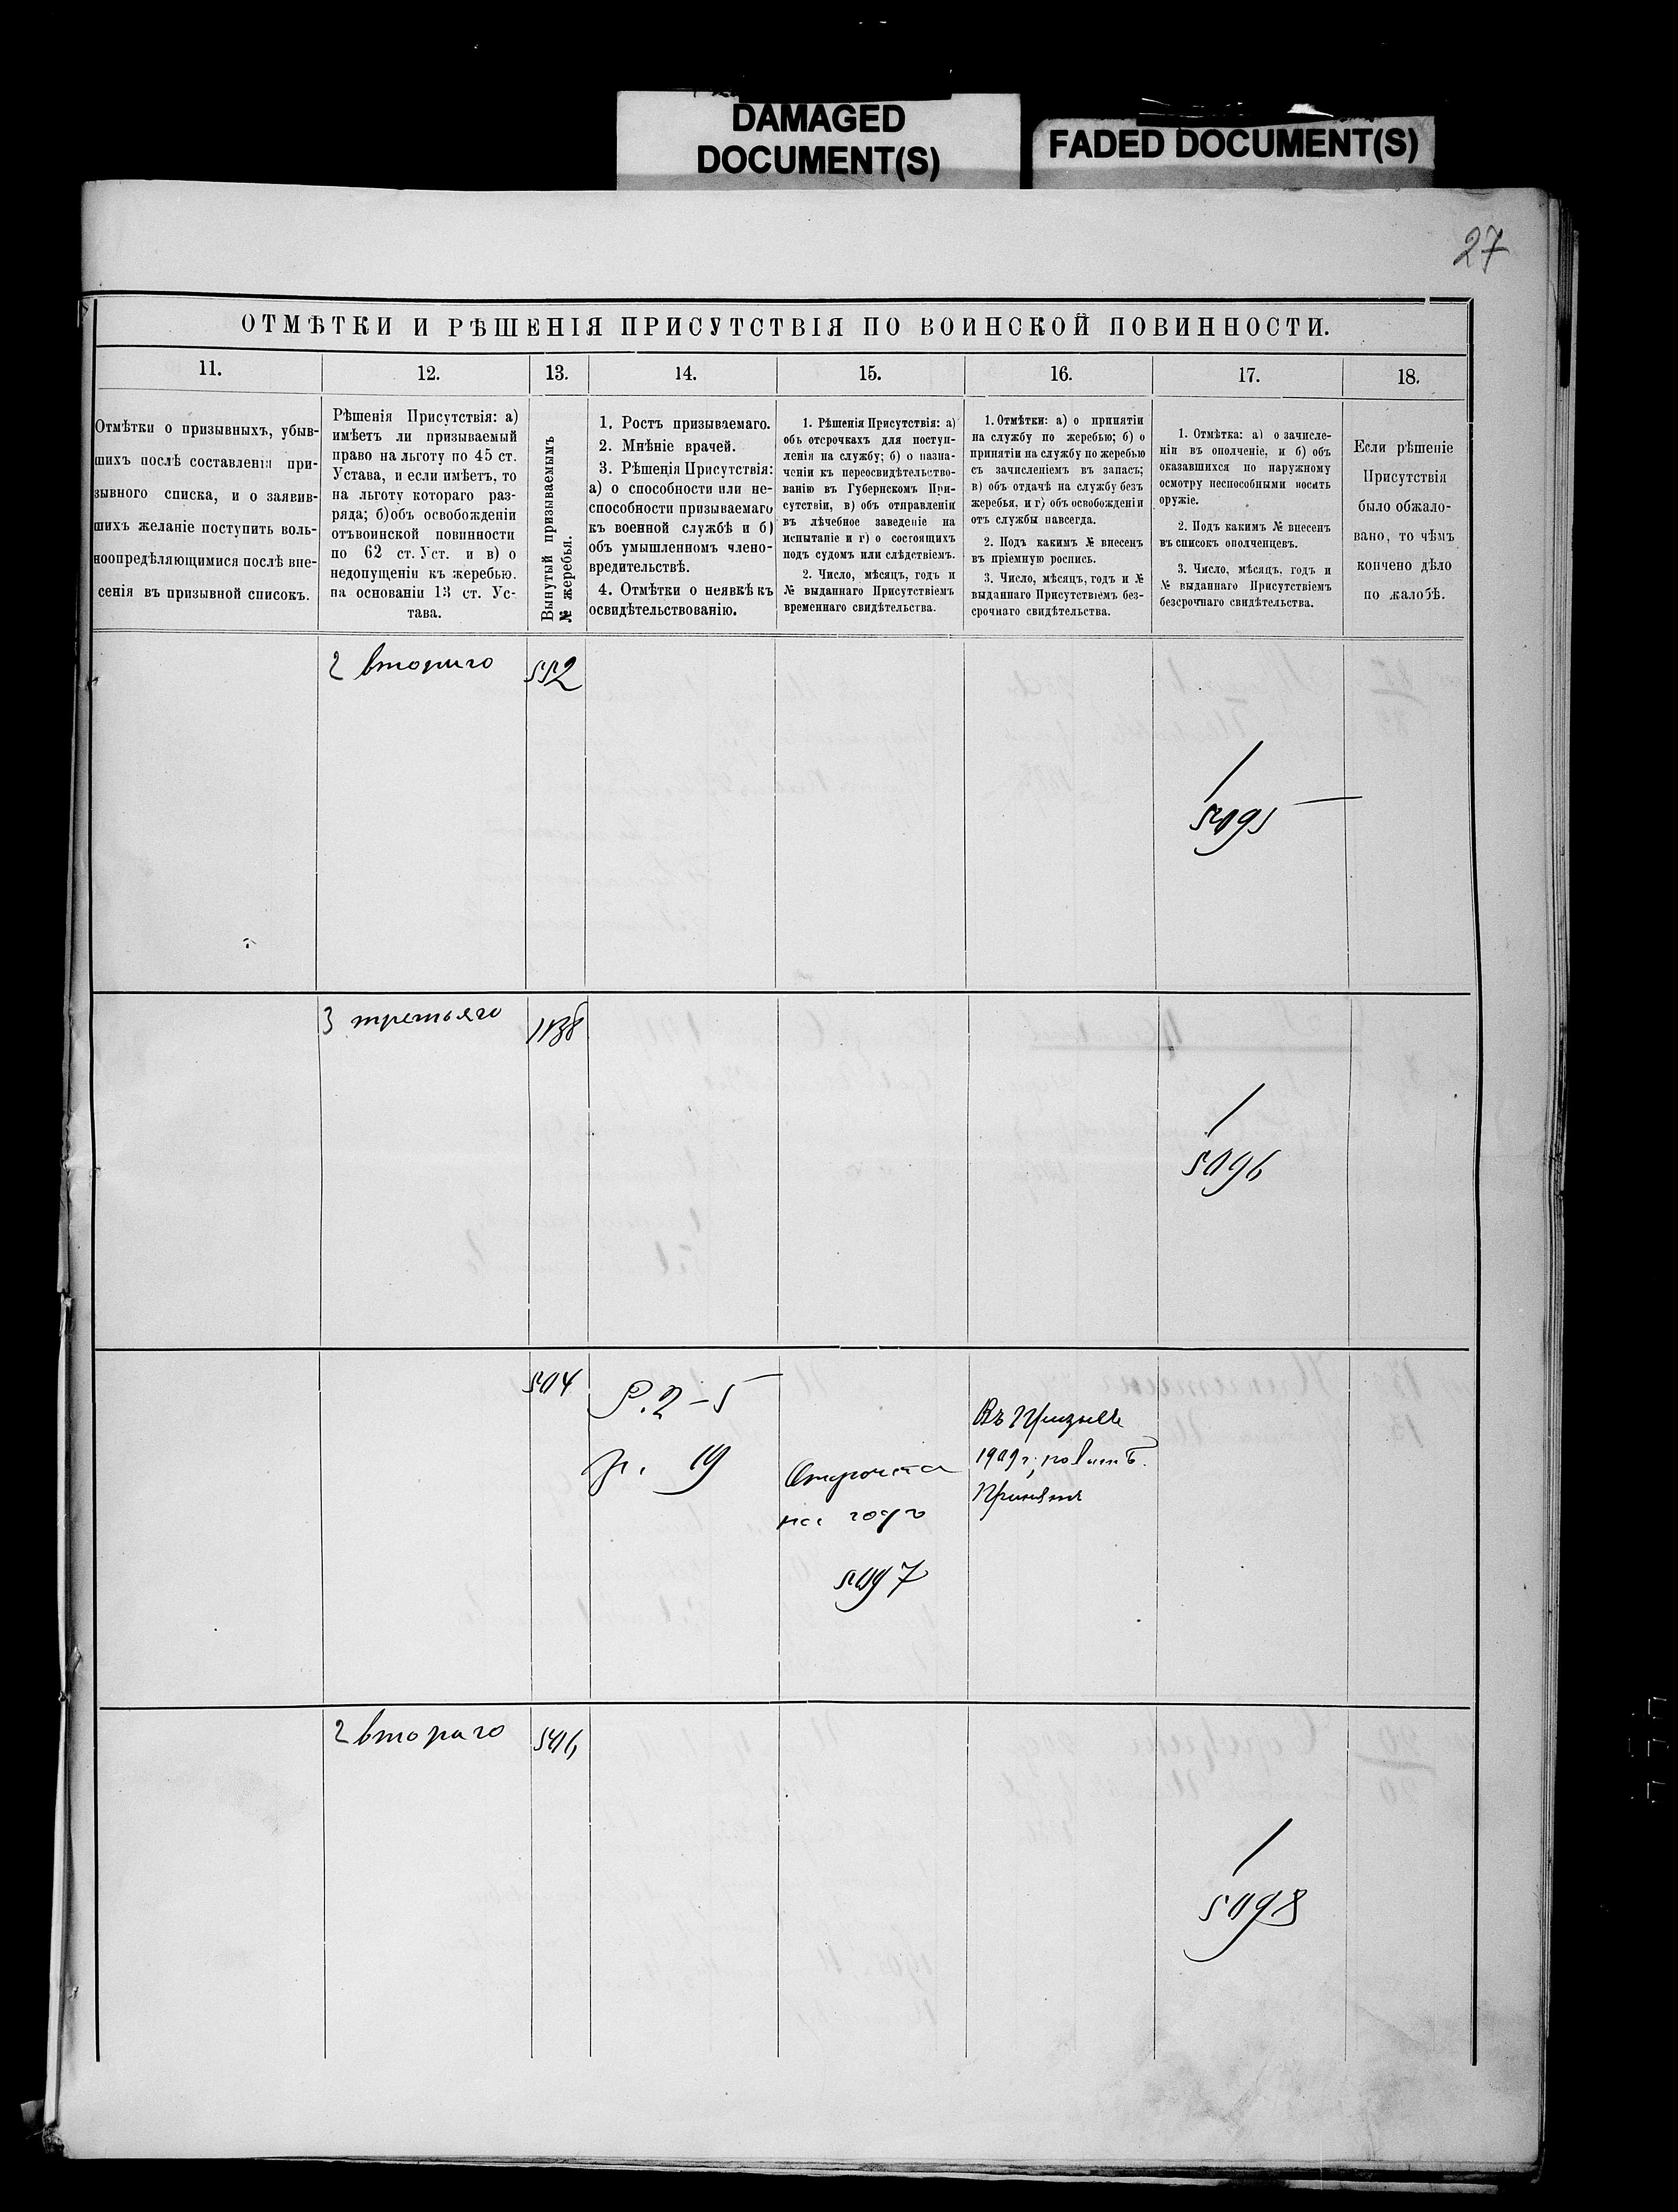 DAMAGED
DOCUMENT(S)
FADED DOCUMENT(S)
27
ОТМѢТКИ И РѢШЕНІЯ ПРИСУТСТВІЯ ПО ВОИНСКОЙ ПОВИННОСТИ.
11.
12.
13.
14.
15.
16.
17.
18.
Отмѣтки о призывныхъ, убыв-
шихъ послѣ составленія при-
зывного списка, и о заявив-
шихъ желаніе поступить воль-
ноопредѣляющимися послѣ вне-
сенія въ призывной списокъ.
Рѣшенія Присутствія: а)
имѣетъ ли призываемый
право на льготу по 45 ст.
Устава, и если имѣетъ, то
на льготу котораго раз-
ряда; б) объ освобожденіи
отъ воинской повинности
по 62 ст. Уст. и в) о
недопущеніи къ жеребью.
на основаніи 13 ст. Ус-
тава.
Вынутый призываемымъ
№ жеребья.
1. Ростъ призываемаго.
2. Мнѣніе врачей.
3. Рѣшенія Присутствія:
а) о способности или не-
способности призываемаго
къ военной службѣ и б)
объ умышленномъ члено-
вредительствѣ.
4. Отмѣтки о неявкѣ къ
освидѣтельствованію.
1. Рѣшенія Присутствія: а)
объ отсрочкахъ для поступ-
ленія на службу; б) о назна-
ченіи къ переосвидѣтельство-
ванію въ Губернскомъ При-
сутствіи, в) объ отправленіи
въ лѣчебное заведеніе на
испытаніе и г) о состоящихъ
подъ судомъ или слѣдствіемъ.
2. Число, мѣсяцъ, годъ и
№ выданнаго Присутствіемъ
временнаго свидѣтельства.
1. Отмѣтки: а) о принятіи
на службу по жеребью; б) о
принятіи на службу по жеребью
съ зачисленіемъ въ запасъ;
в) объ отдачѣ на службу безъ
жеребья, и г) объ освобожденіи
отъ службы навсегда.
2. Подъ какимъ № внесенъ
въ пріемную роспись.
3. Число, мѣсяцъ, годъ и №
выданнаго Присутствіемъ без-
срочнаго свидѣтельства.
1. Отмѣтка: а) о зачисле-
ніи въ ополченіе, и б) объ
оказавшихся по наружному
осмотру неспособными носить
оружіе.
2. Подъ какимъ № внесенъ
въ списокъ ополченцевъ.
3. Число, мѣсяцъ, годъ и
№ выданнаго Присутствіемъ
безсрочнаго свидѣтельства.
Если рѣшеніе
Присутствія
было обжало-
вано, то чѣмъ
кончено дѣло
по жалобѣ.
2 второго
552
1
5095
3 третьяго
1138
1
5096
504
Р. 2-5
19
Отсрочка
на годъ
5097
Въ Призывѣ
1909 г.
Принятъ
2 втораго
506
1
5098